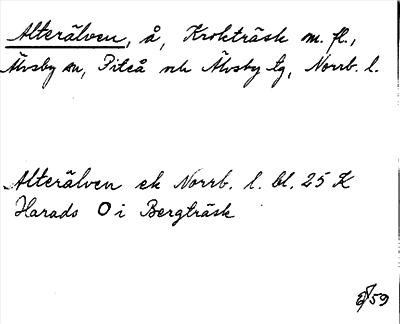 Alterälven, å, Krokträsk m. fl.,
Älvsby sn, Piteå och Älvsby tg, Norrb. l.
Alterälven ek Norrb. l. bl. 25 K
Harads O i Bergträsk
/59